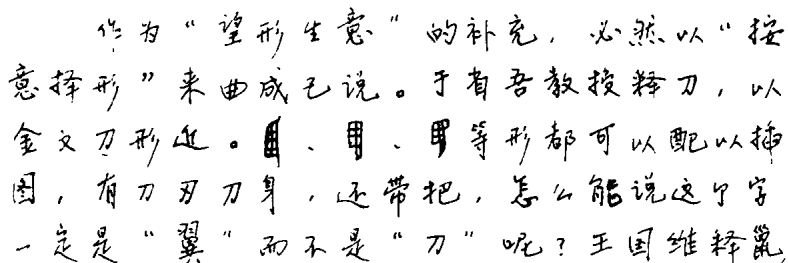 作为“望形生意”的补充，必然以“按
意择形”来曲成己说。于省吾教授释刀，以
金文刀形近。、、等形都可以配以插
图，有刀刃刀身，还带把，怎么能说这个字
一定是“翼”而不是“刀”呢？王国维释鬣